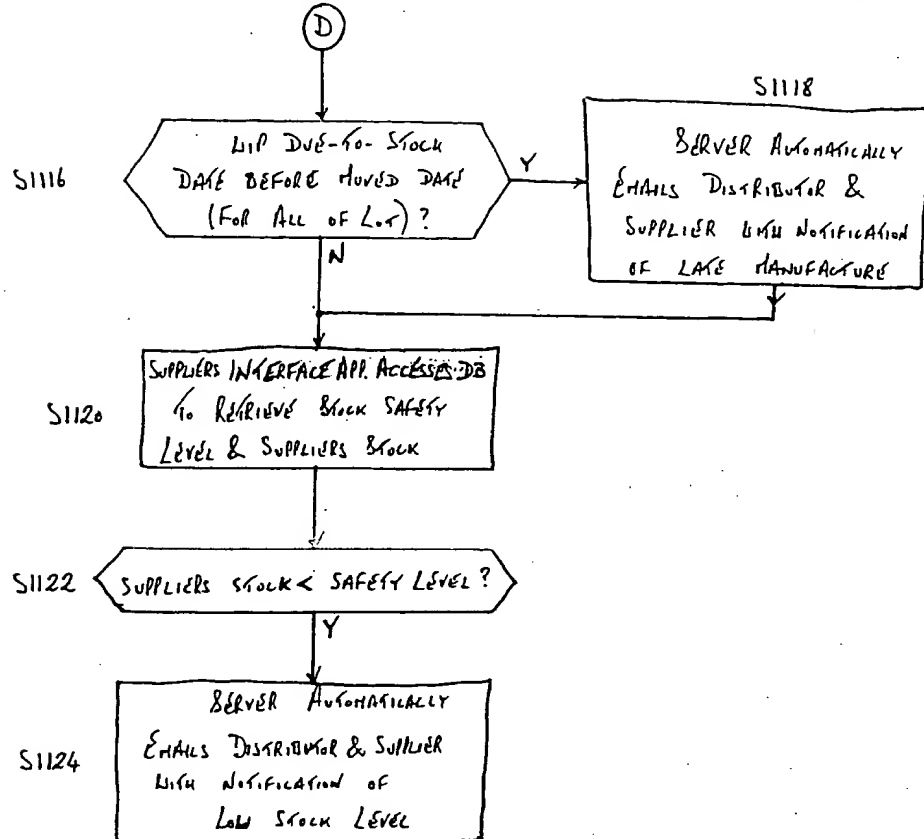 D
S1116
WIP DUE-TO-STOCK
DATE BEFORE MOVED DATE
(FOR ALL OF LOT)?
Y
N
S1118
SERVER AUTOMATICALLY
EMAILS DISTRIBUTOR &
SUPPLIER WITH NOTIFICATION
OF LATE MANUFACTURE
S1120
SUPPLIERS INTERFACE APP. ACCESSES DB
TO RETRIEVE STOCK SAFETY
LEVEL & SUPPLIERS STOCK
S1122
SUPPLIERS STOCK < SAFETY LEVEL?
Y
S1124
SERVER AUTOMATICALLY
EMAILS DISTRIBUTOR & SUPPLIER
WITH NOTIFICATION OF
LOW STOCK LEVEL